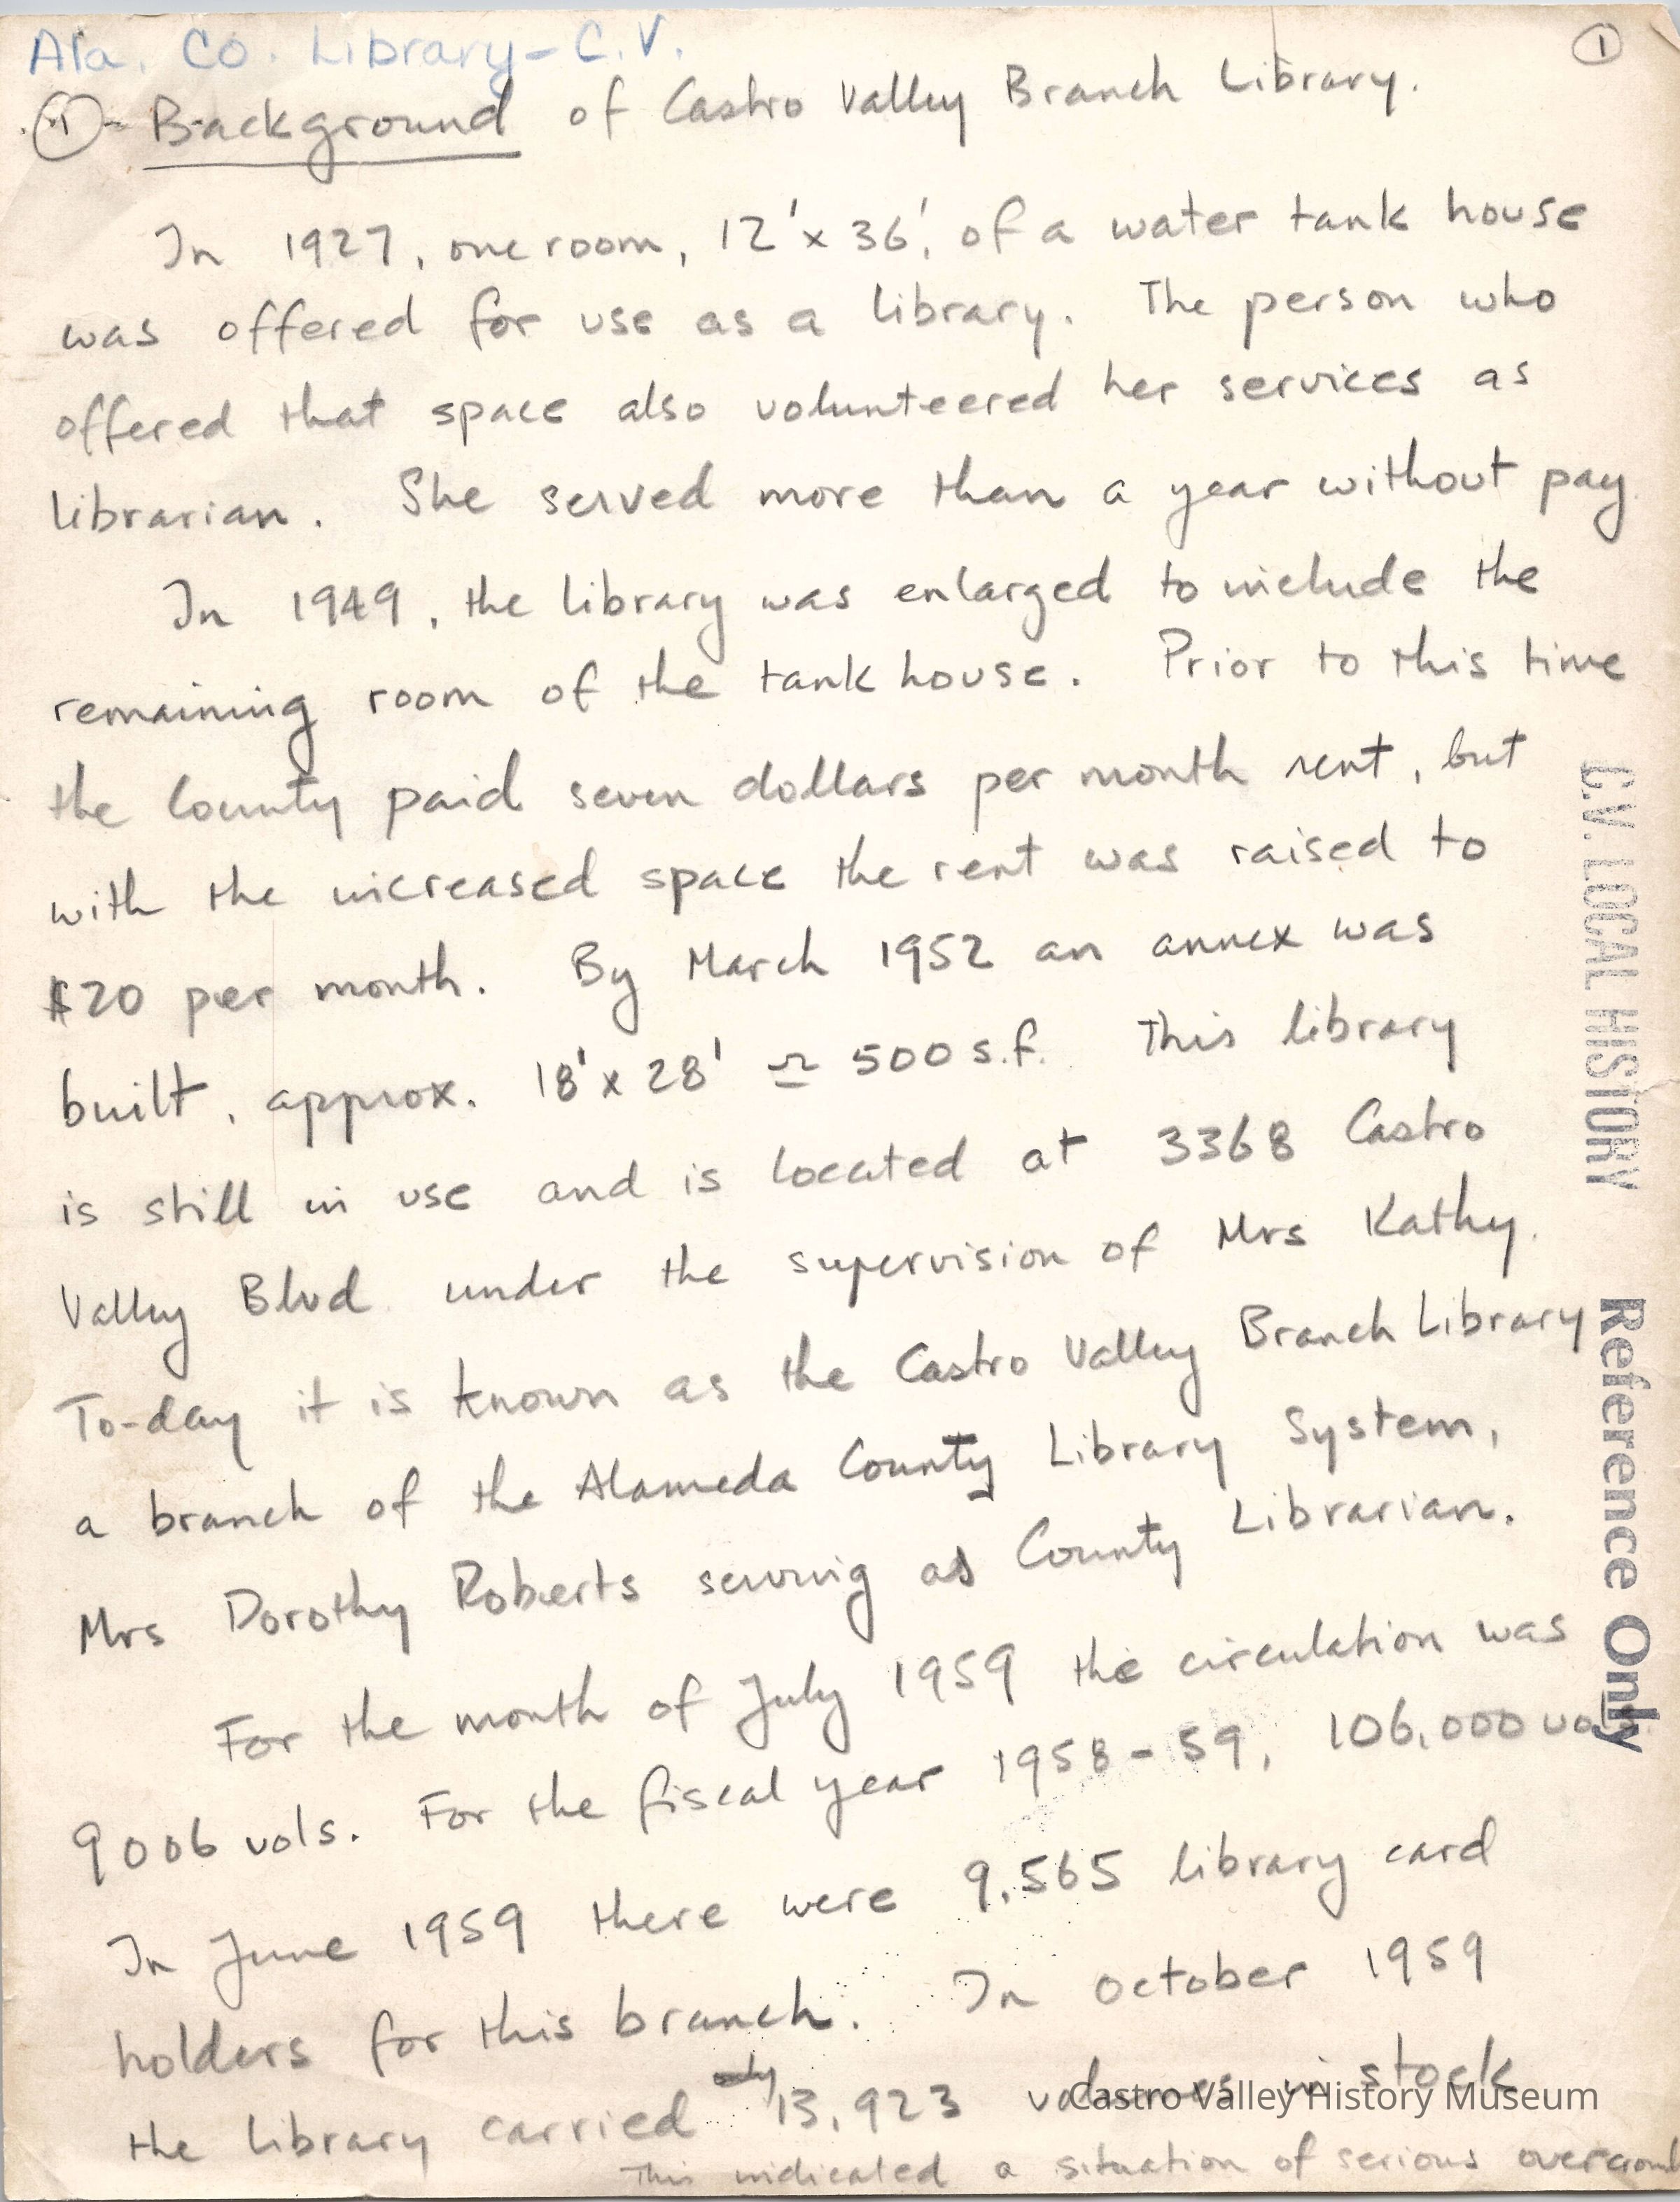 Ala. Co. Library - C.V.
1
1 - Background of Castro Valley Branch Library.
In 1927, one room, 12' x 36', of a water tank house
was offered for use as a library. The person who
offered that space also volunteered her services as
librarian. She served more than a year without pay
In 1949, the library was enlarged to include the
remaining room of the tank house. Prior to this time
the County paid seven dollars per month rent, but
with the increased space the rent was raised to
$20 per month. By March 1952 an annex was
built, approx. 18' x 28' ≃ 500 s.f. This library
is still in use and is located at 3368 Castro
Valley Blvd under the supervision of Mrs Kathy.
To-day it is known as the Castro Valley Branch Library
a branch of the Alameda County Library System,
Mrs Dorothy Roberts serving as County Librarian.
For the month of July 1959 the circulation was
9006 vols. For the fiscal year 1958-59, 106,000
In June 1959 there were 9,565 library card
holders for this branch. In October 1959
the library carried only 13,923 volumes in stock
This indicated a situation of serious
C.V. LOCAL HISTORY
Reference Only
Castro Valley History Museum